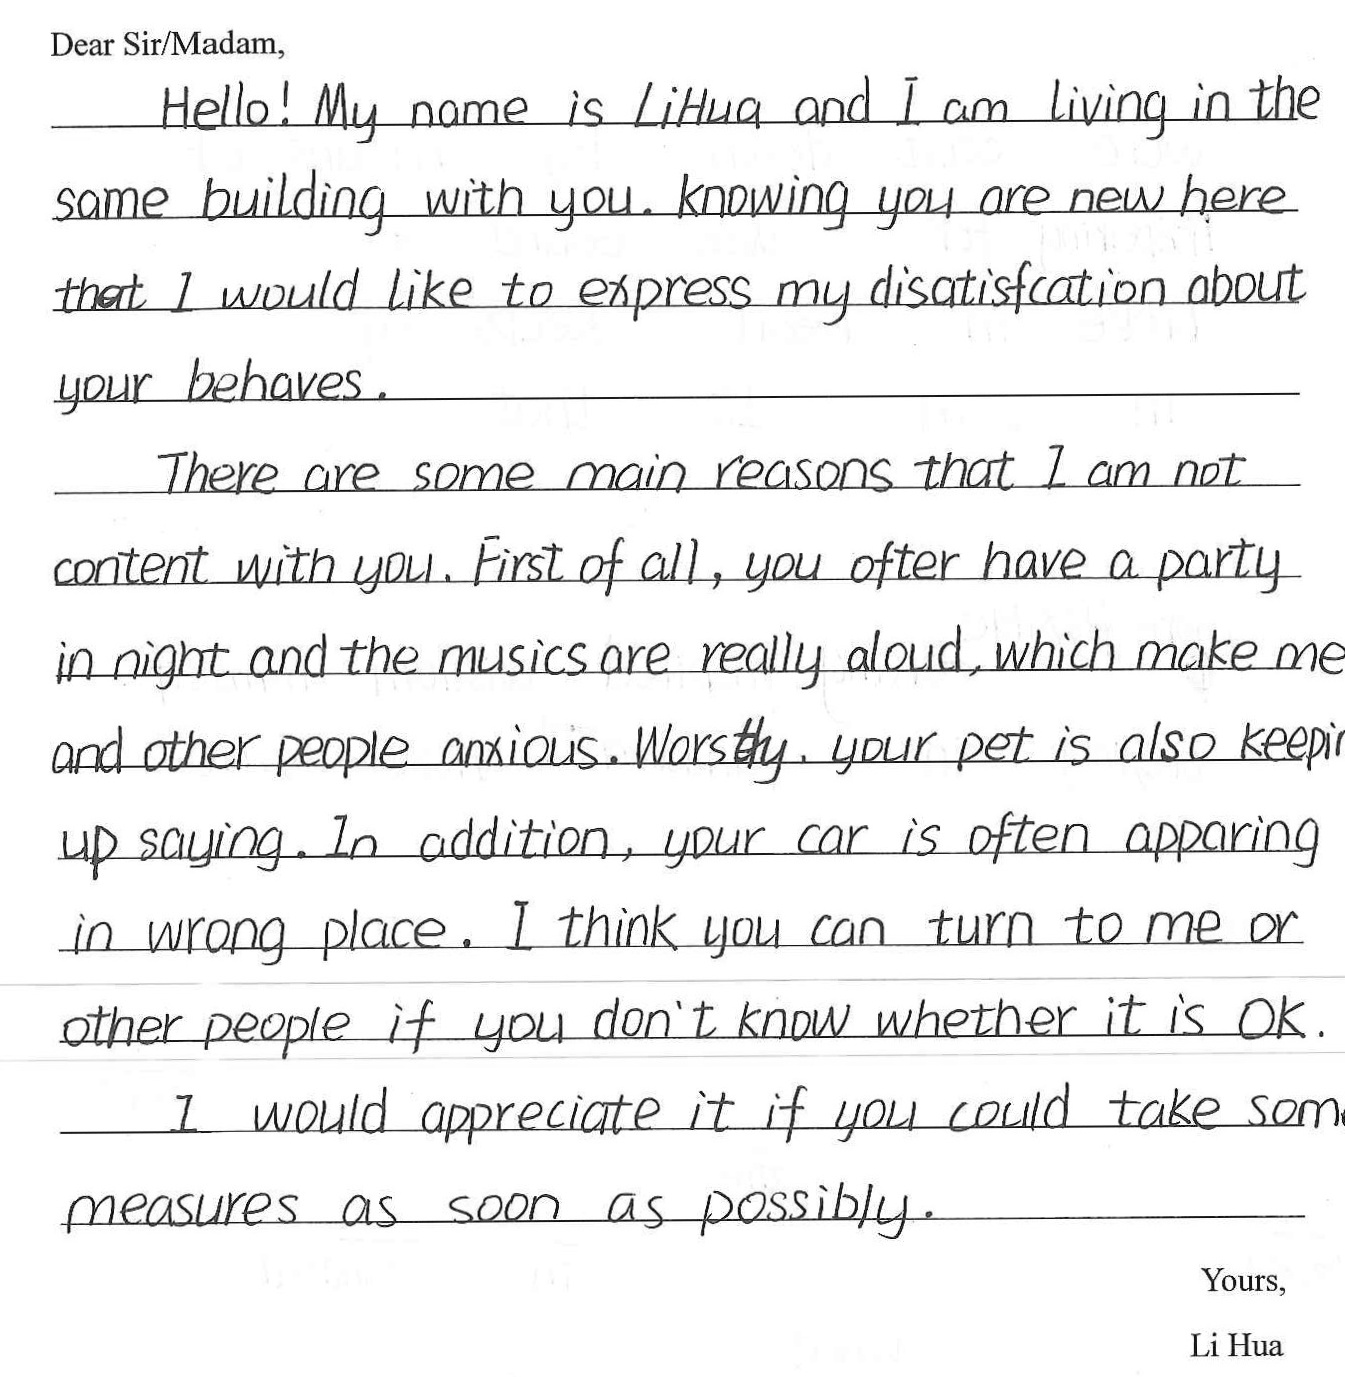 Dear Sir/Madam,
Hello! My name is LiHua and I am living in the
same building with you. Knowing you are new here
that I would like to express my disatisfcation about
your behaves.
There are some main reasons that I am not
content with you. First of all, you ofter have a party
in night and the musics are really aloud, which make me
and other people anxious. Worstly, your pet is also keepin
up saying. In addition, your car is often apparing
in wrong place. I think you can turn to me or
other people if you don't know whether it is OK.
I would appreciate it if you could take some
measures as soon as possibly.
Yours,
Li Hua